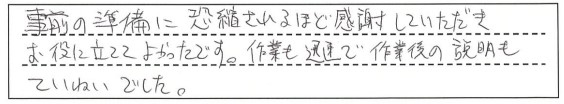 事前の準備に恐縮されるほど感謝していただき
お役に立ててよかったです。作業も迅速で作業後の説明も
ていねいでした。